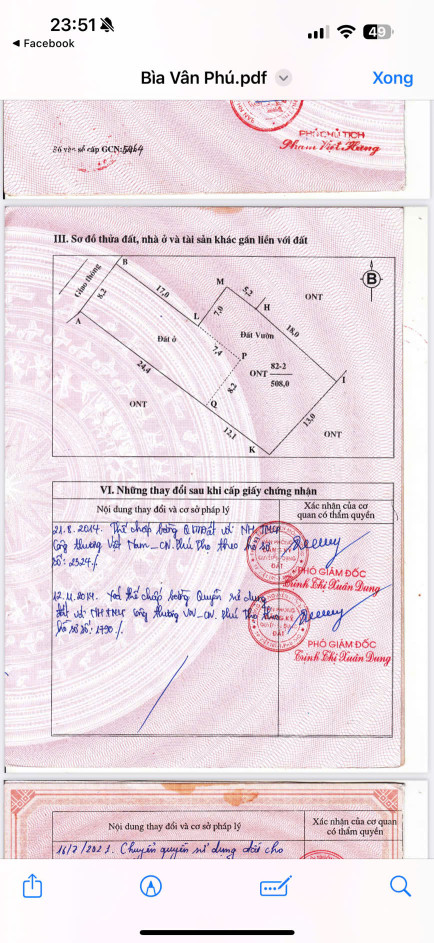 23:51
49
◀ Facebook
Bìa Vân Phú.pdf
Xong
PHÓ CHỦ TỊCH
Phạm Việt Hùng
Số vào sổ cấp GCN:
III. Sơ đồ thửa đất, nhà ở và tài sản khác gắn liền với đất
Giao thông
B
A
8,2
17,0
L
M
7,0
5,2
H
ONT
18,0
B
Đất ở
Đất Vườn
7,4
P
ONT
82-2
508,0
I
24,4
8,2
Q
ONT
12,1
K
13,0
ONT
VI. Những thay đổi sau khi cấp giấy chứng nhận
Nội dung thay đổi và cơ sở pháp lý
Xác nhận của cơ
quan có thẩm quyền
21.8.2014. Thế chấp bằng QSDĐất với NH TMCP
Công thương Việt Nam_CN. Phú Thọ theo hồ sơ
số: 2524/.
PHÓ GIÁM ĐỐC
Trịnh Thị Xuân Dung
Xoá thế chấp bằng Quyền sử dụng
đất với NH TMCP Công thương VN_CN. Phú Thọ theo
hồ sơ số: 1790/.
PHÓ GIÁM ĐỐC
Trịnh Thị Xuân Dung
Nội dung thay đổi và cơ sở pháp lý
Xác nhận của cơ quan
có thẩm quyền
Chuyển quyền sử dụng đất cho